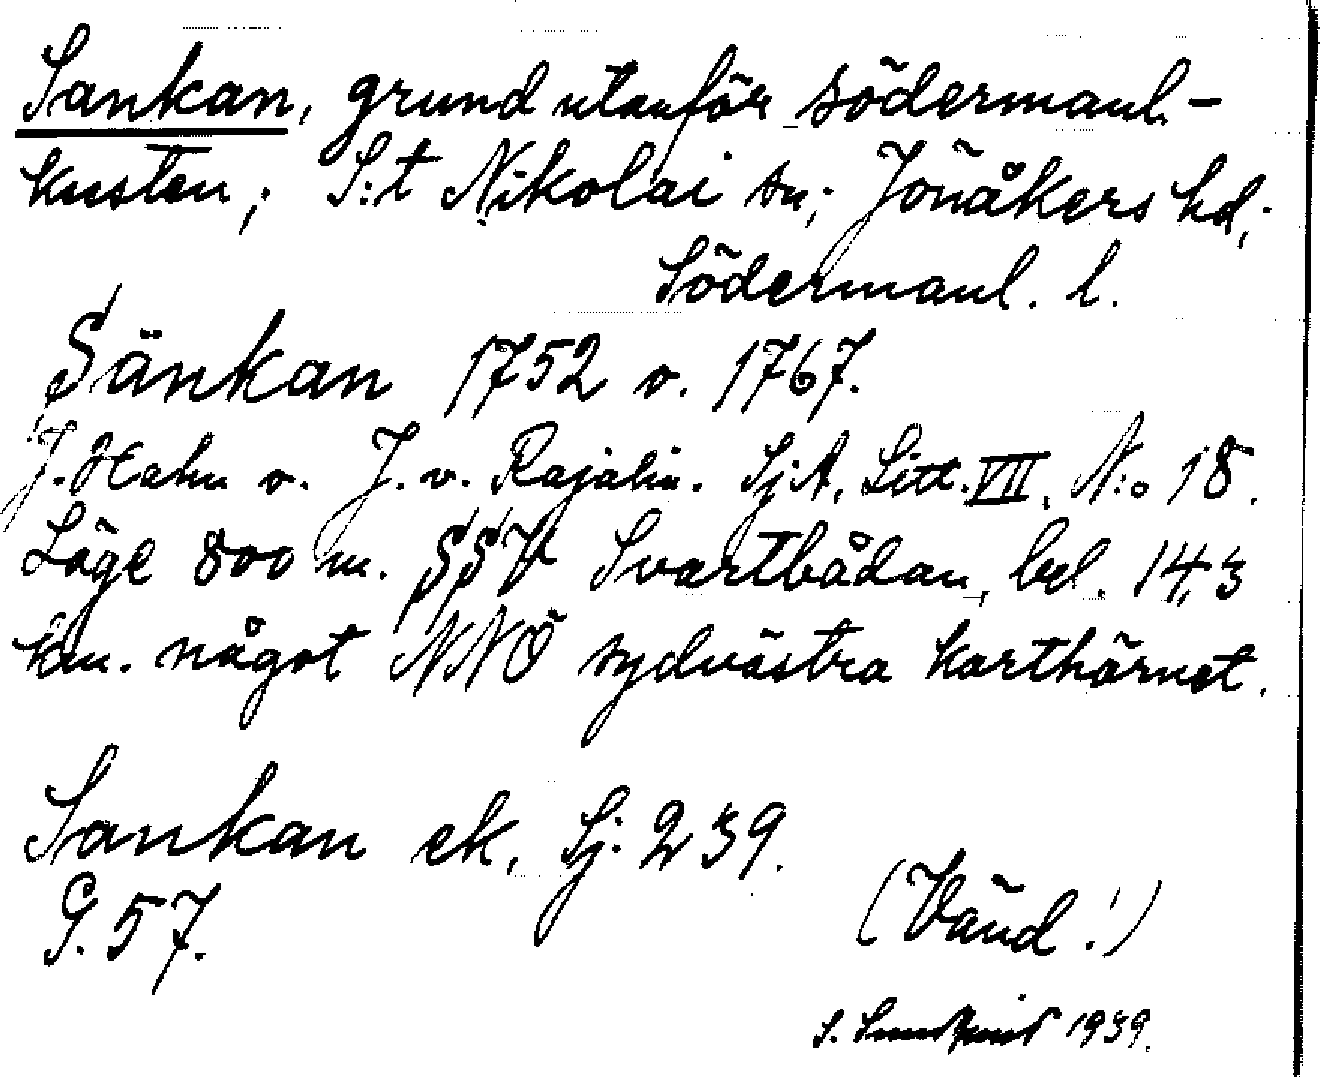 Sankan, grund utanför södermanl.-
kusten; S:t Nikolai sn; Jönåkers hd;
Södermanl. l.
Sänkan 1752 o. 1767.
J. Hahn o. J. v. Rajalin. SjA, Litt. VII, N:o 18.
Läge 800 m. SSV Svartbådan, bel. 14,3
km. något NNÖ sydvästra karthörnet.
Sankan ek. Sj. 239.
G. 57.
(Vänd!)
S. Sundqvist 1939.